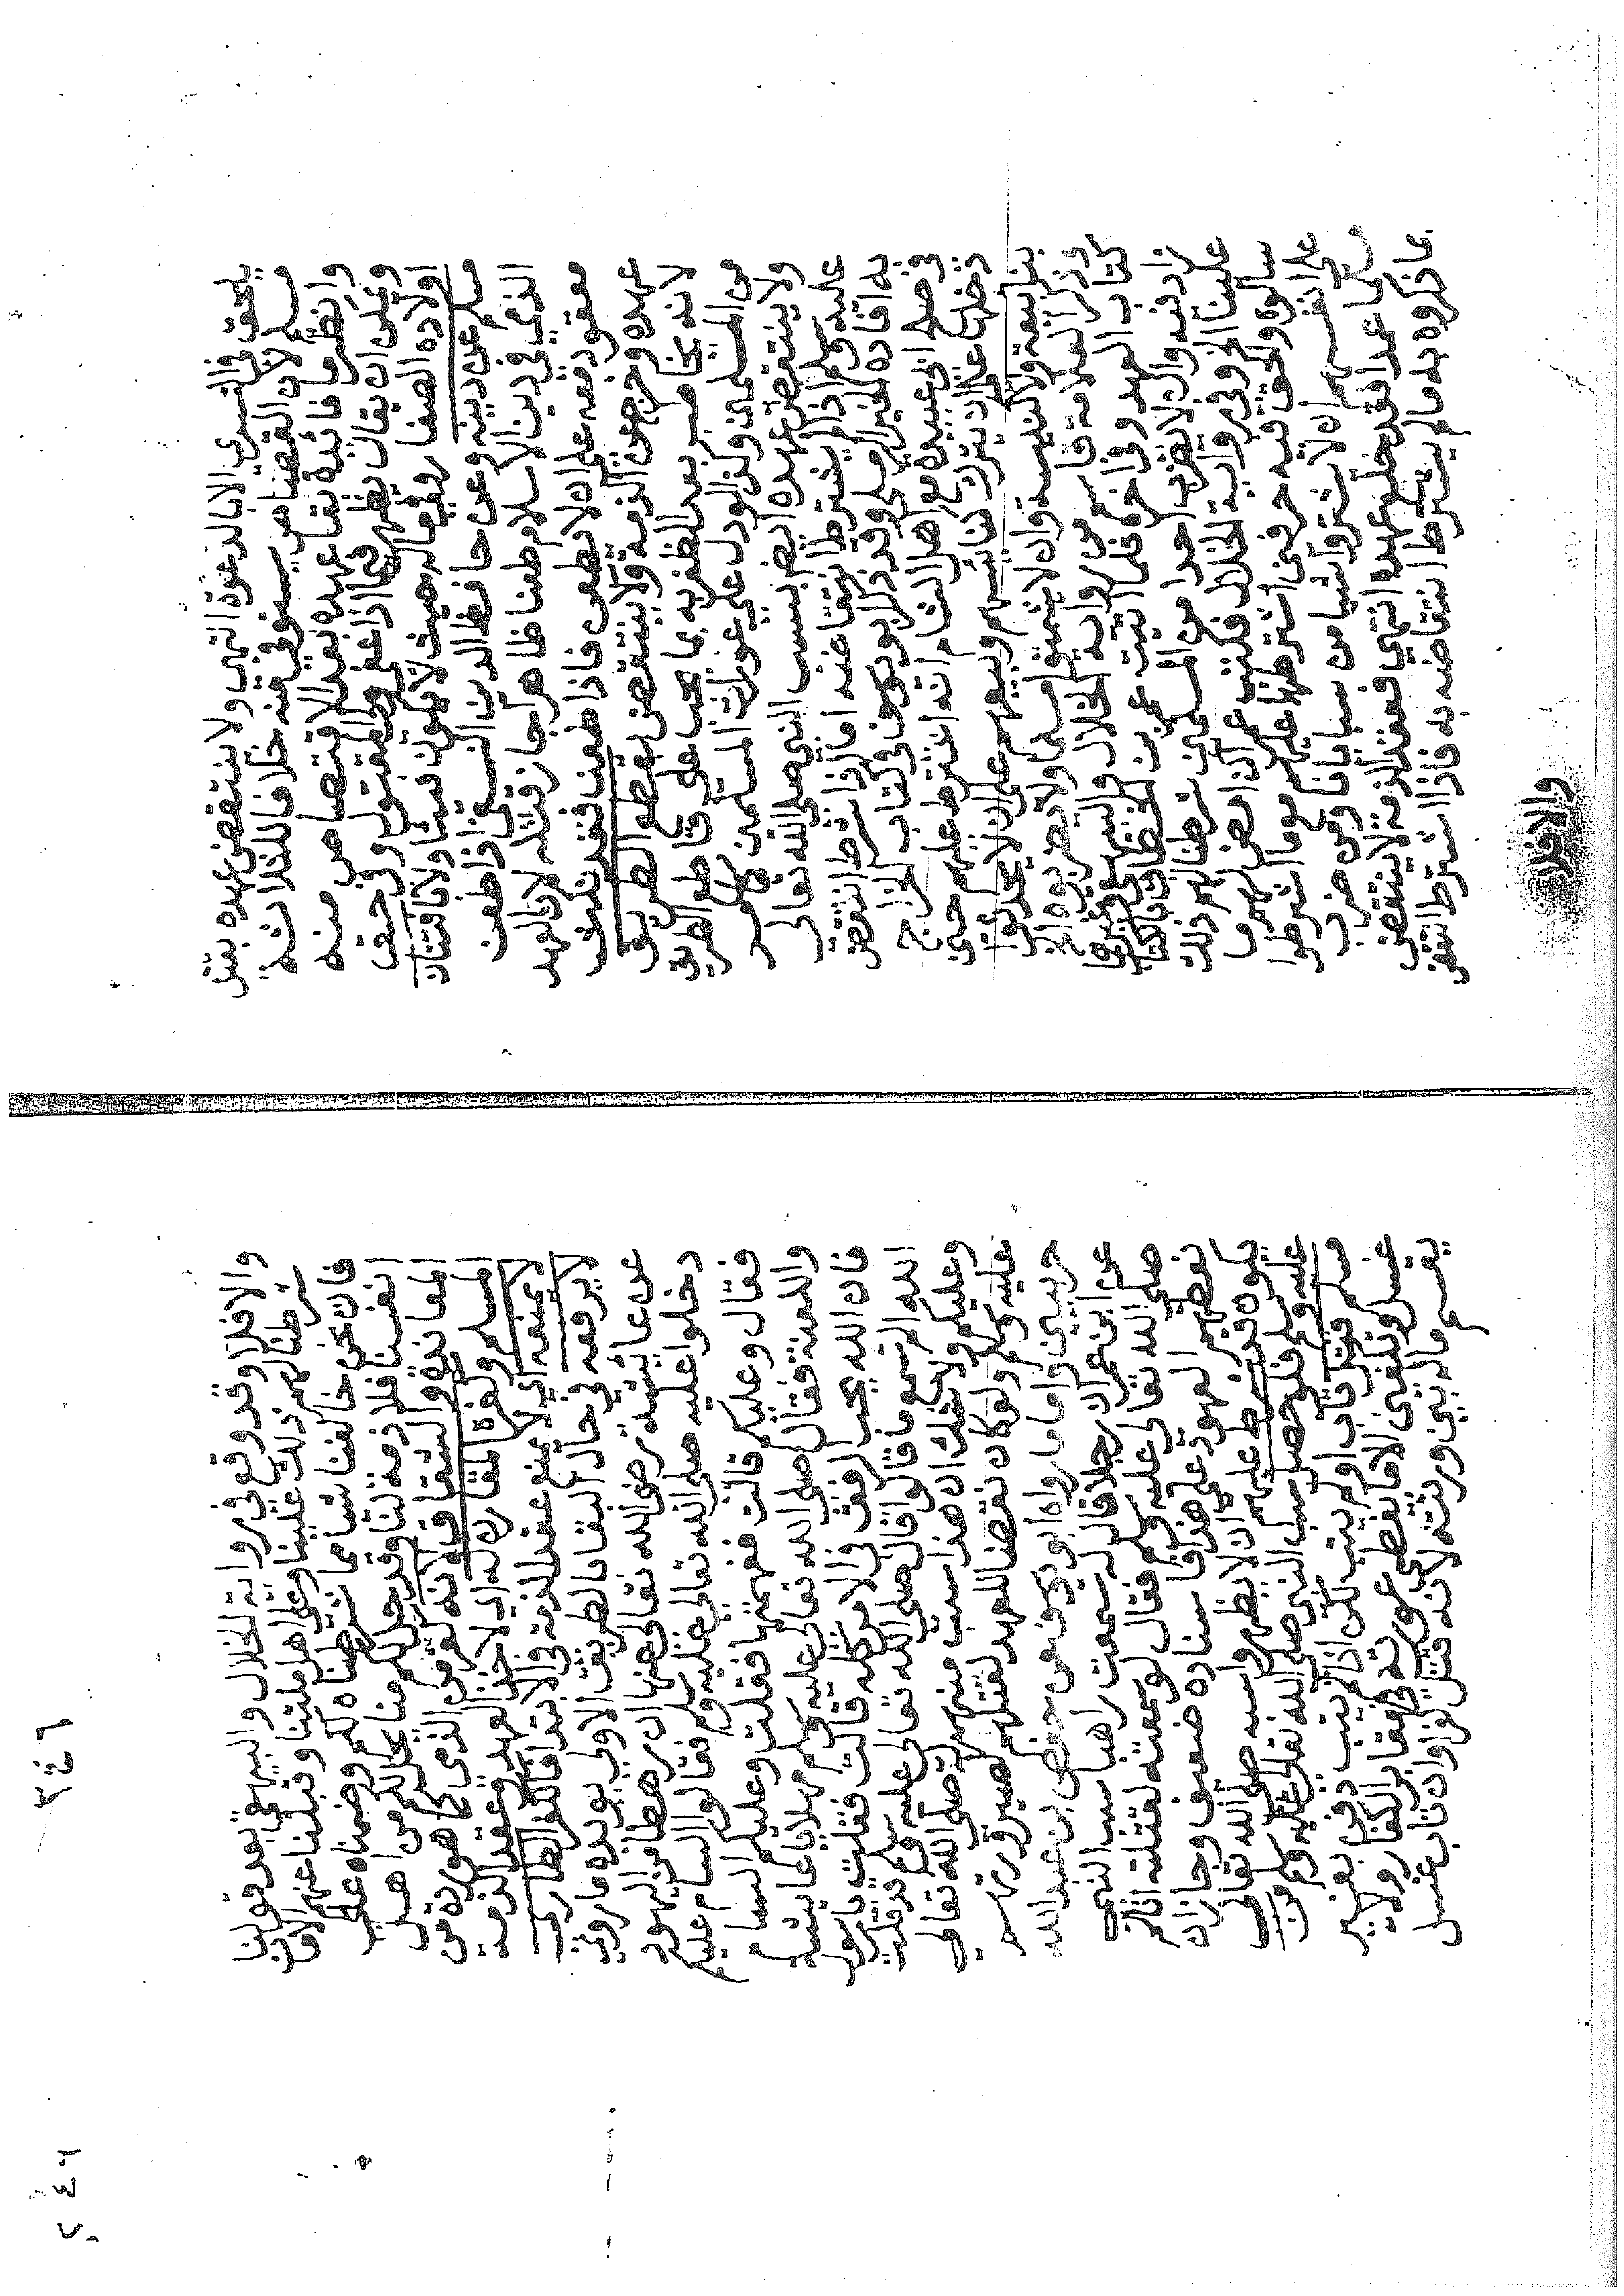 يلحق في التسري الا بالدعوة انتهى ولا ينتقض عهده بقتل
مسلم لان القصاص يستوفى منه خلافا للثلاثة
وانظر ما فائدة بقا عهده بعد الاقتصاص منه
ويمكن ان يقال يظهر فيما اذا عفى ولي المقتول وفي حق
اولاده الصغار وفي ماله حيث لا يكون فيئا ولا بافتتان
مسلم عن دينه وعن حافظ الدين النسفي اذا طعن
الذمي في دين الاسلام طعنا ظاهرا جاز قتله لان العهد
معقود معه على ان لا يطعن فاذا طعن فقد نكث
عهده وخرج من الذمة ولا ينتقض بقطع الطريق
لانه يخاصر بعد الظفر به بما يجب على قاطع الطريق
من المسلمين ولا بدل على عورات المسلمين كما مر
ولا ينتقض عهده ايضا بسب النبي صلى الله تعالى
عليه وسلم اذا لم يشترط انتقاضه اما اذا شرط انتقض
به افاده الخير الرملي وقد ذكر ابو يوسف في كتاب الخراج
في صلح ابي عبيدة مع اهل الشام انه اشترط عليهم حين
دخلها على ان يترك كنائسهم وبيعهم على ان لا يحدثوا
بنا بيعة ولا كنيسة وان لا يشتموا مسلما ولا يضربوه الخ
وذكر العلامة قاسم من رواية الخلال والبيهقي وغيرهما
كتاب العهد وفي اخره فلما اتيت عمر بن الخطاب بالكتاب
زاد فيه وان لا نضرب احدا من المسلمين شرطنا لهم ذلك
علينا الخ وفي رواية الخلال فكتب عمر ان امض لهم ما
سالوه والحق فيه حرفين اشترطهما عليهم مع ما شرطوا
على انفسهم ان لا يشتروا شيا من سبايانا ومن ضرب
مسلما عمدا فقد خلع عهده انتهى فعقد الذمة لا ينتقض
بما ذكروه به مالم يشترط انتقاضه به فاذا اشترط انتقض
والافلا
والا فلا وقد وقع في رواية الخلال والبيهقي بعد قولنا
شرطنا لهم ذلك علينا وعلى اهل ملتنا وقبلنا عنهم الامان
فان نحن خالفنا شيا مما شرطناه لكم وضمناه على
انفسنا فلا ذمة لنا وقد حل لكم منا ما يحل لكم من اهل
المعاندة والشقاق لانه كفر من الذمي كما هو ردة من
المسلم وكفره المقارن له اي لاخذ العهد وعقد الذمة
لا يمنعه اي لا يمنع عقد الذمة في الابتدا فالكفر الطاري
لا يرفعه في حال البقا بالطريق الاولى يويده ما روي
عن عايشة رضي الله تعالى عنها ان رهطا من اليهود
دخلوا عليه صلى الله تعالى عليه وسلم فقالوا السام عليكم
فقال وعليكم قالت ففهمتها فقلت وعليكم السام
واللعنة فقال صلى الله تعالى عليه وسلم مهلا يا عايشة
فان الله يحب الرفق في الامر كله قالت فقلت يا رسول
الله الم تسمع ما قالوا قال صلى الله تعالى عليه وسلم قد قلت
وعليكم ولا شك ان هذا سب منهم له صلى الله تعالى
عليه وسلم ولو كان نقضا للعهد لقتلهم لصيرورتهم
حربيين واما ما رواه ابو يوسف عن حفص بن عبد الله
عن ابن عمر ان رجلا قال له سمعت راهبا سب النبي
صلى الله تعالى عليه وسلم فقال لو سمعته لقتلته انا لم
نعطهم العهود على هذا فاسناده ضعيف وجاز ان
يكون قد شرط عليهم ان لا يظهروا سبه صلى الله تعالى
عليه وسلم فلو حصل سب النبي صلى الله تعالى عليه وسلم من
مسلم قتل تاب او لم يتب لكن اذا لم يتب دفن بغير
غسل وتكفين الا ما يغطي عورته في مقابر الكفار ولا
يقسم ماله بين ورثته لانه قتل كفرا وان تاب غسل
٣٤٦
٢٤٦